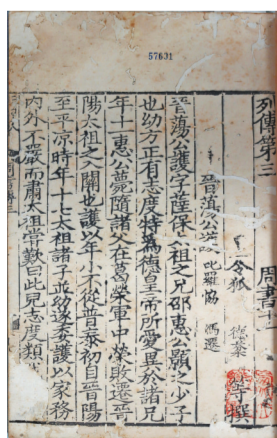 57631
列傳第三 周書十
令狐 德棻 等撰
晉蕩公護
叱羅協 馮遷
晉蕩公護字薩保太祖之兄邵惠公顥之少子
也幼方正有志度特爲德皇帝所愛異於諸兄
年十一惠公薨隨諸父在葛榮軍中榮敗遷晉
陽太祖之入關也護以年小不從普泰初自晉陽
至平涼時年十七太祖諸子並幼遂委護以家務
内外不嚴而肅太祖嘗歎曰此兒志度類